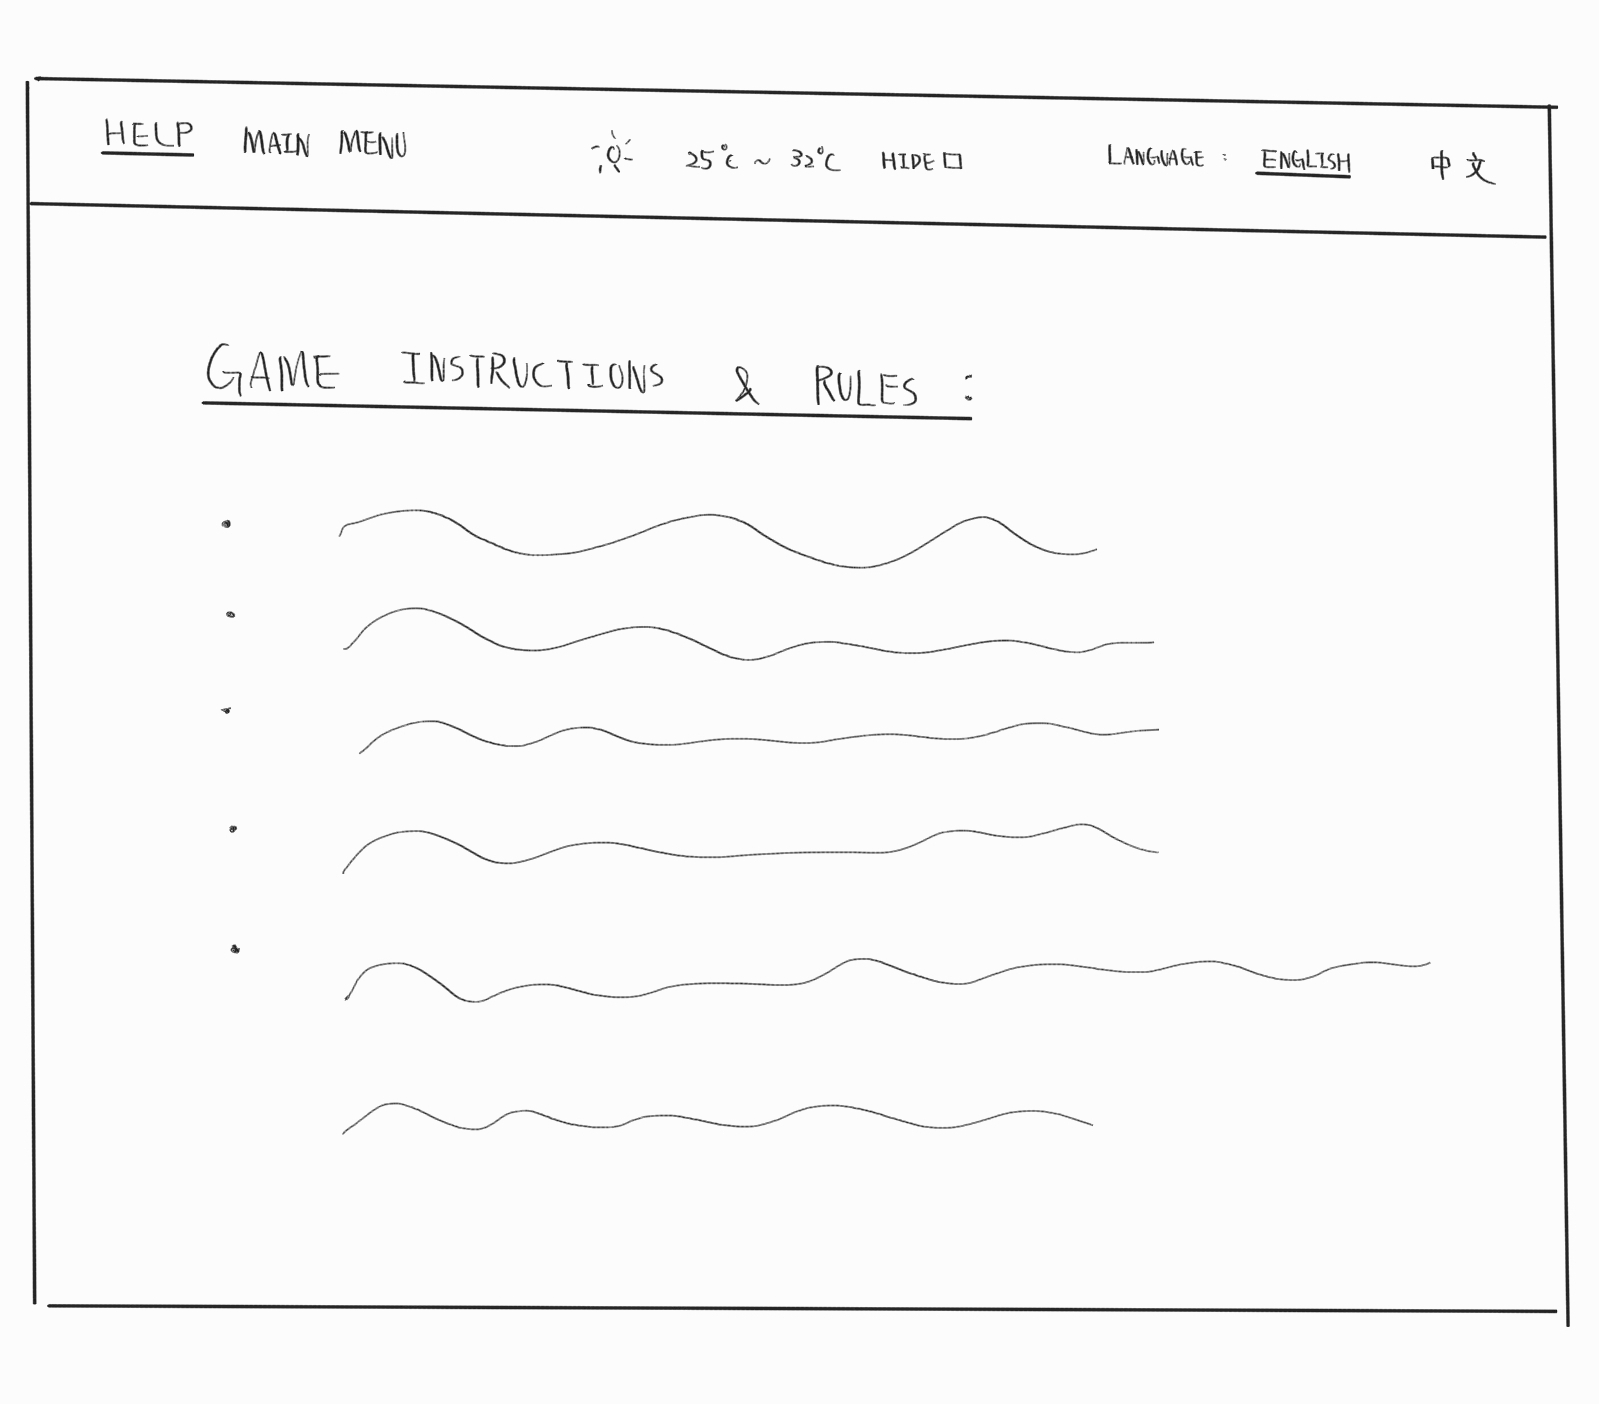 HELP MAIN MENU 25°C ~ 32°C HIDE LANGUAGE : ENGLISH 中文
GAME INSTRUCTIONS & RULES :